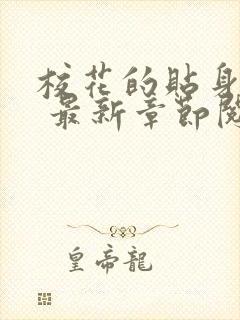 校花的貼身
最新章節閱
皇帝龍